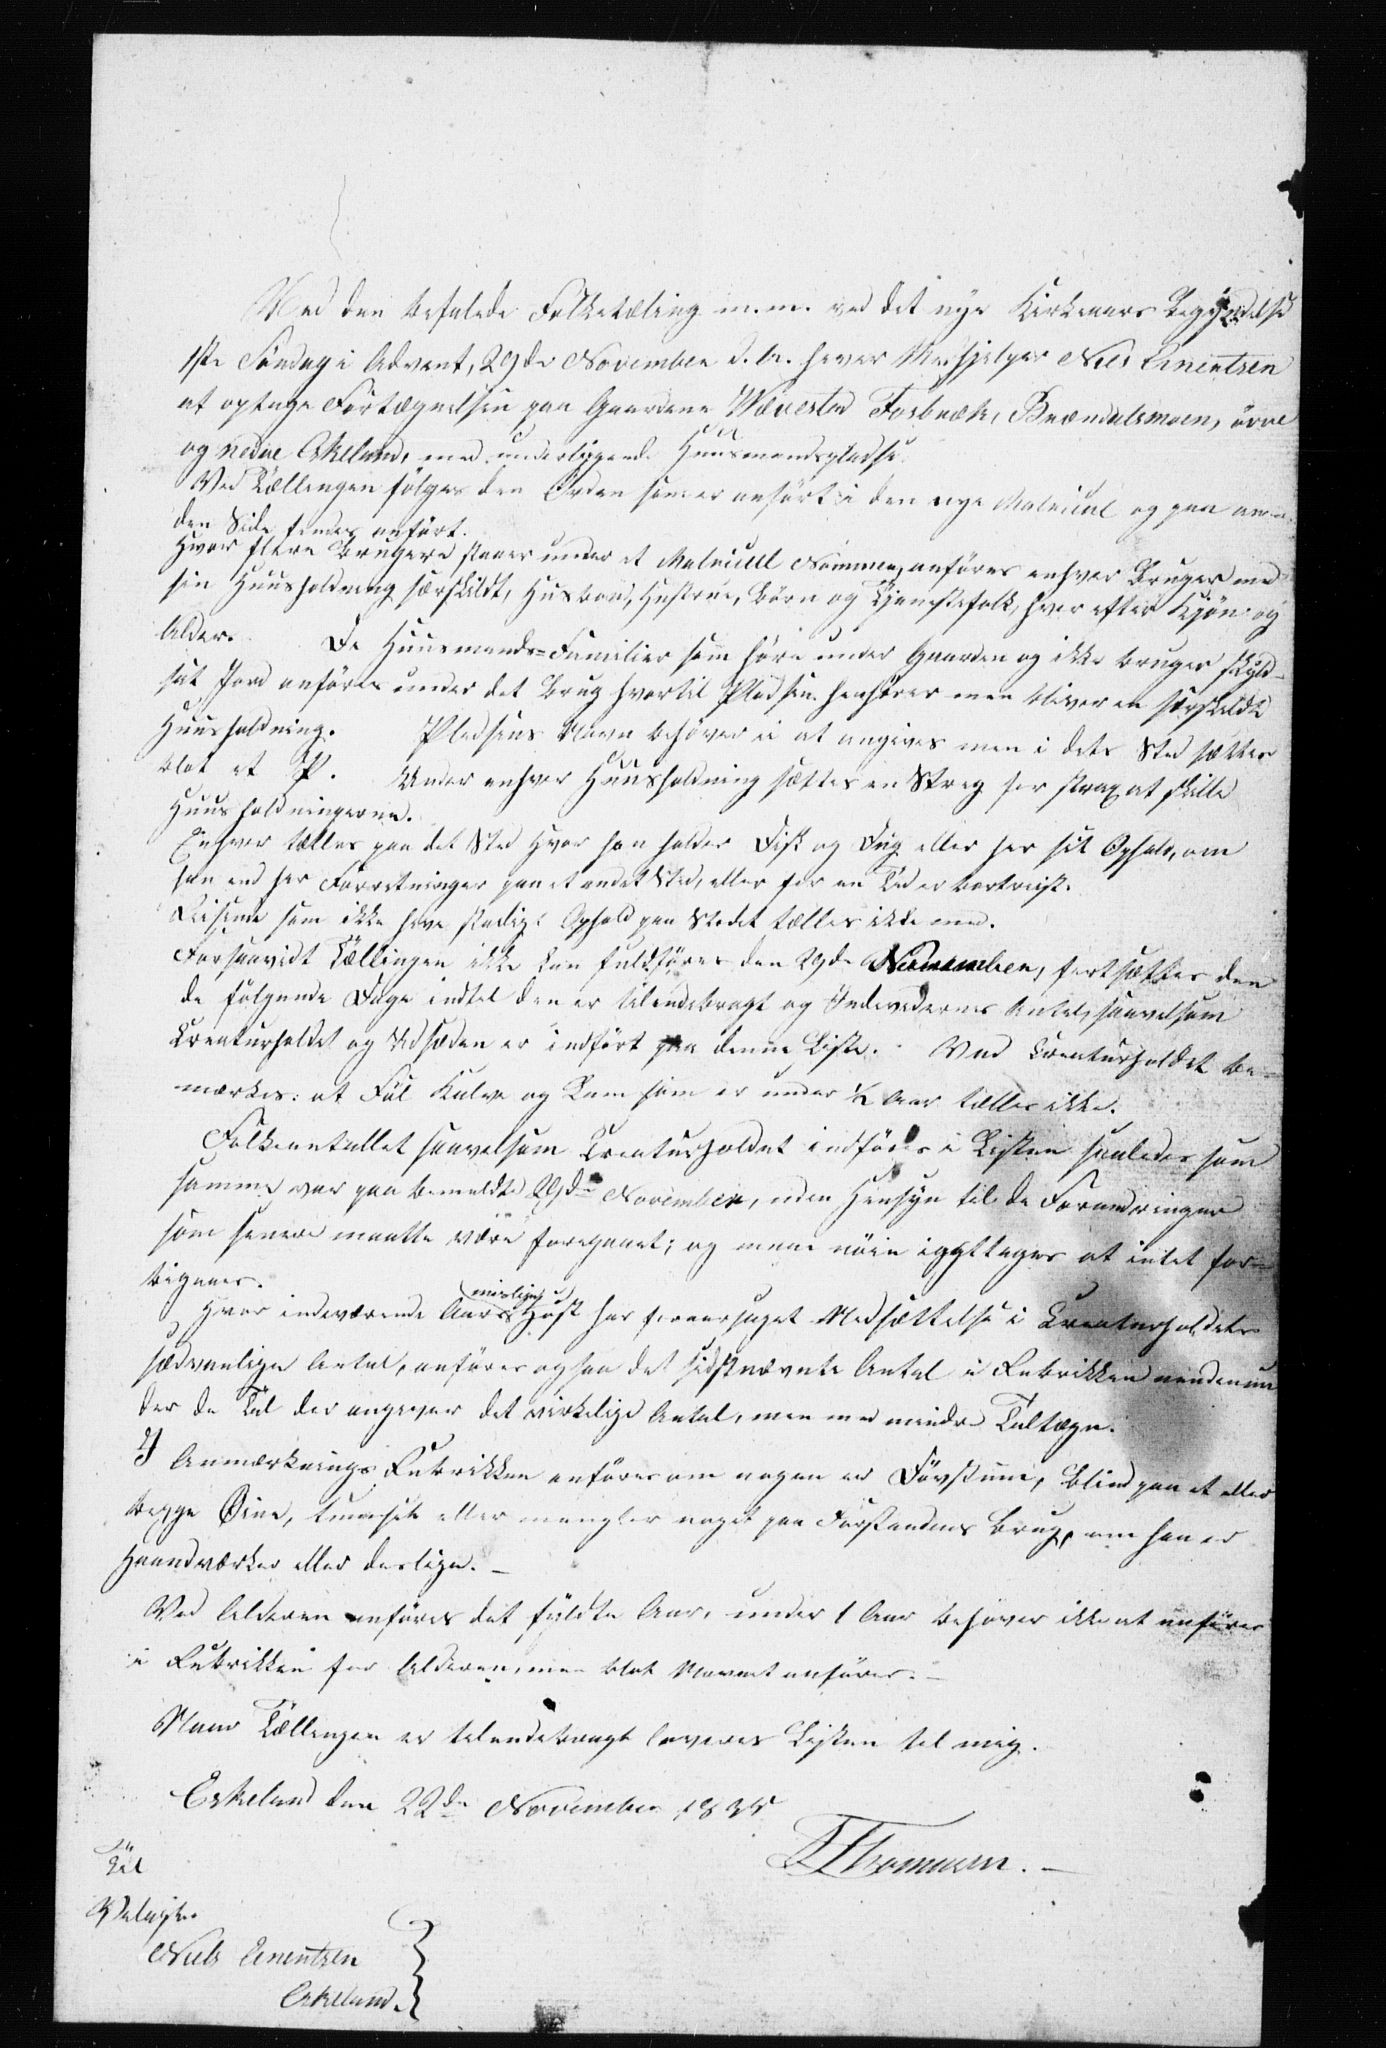 Ved den befalede Folketæling m.m. ved det nye Kirkeaars Begyndelse
1ste Søndag i Advent, 29de November d. A. haver Medhjelper Niels Enentsen
at optage Fortægnelsen paa Gaardene Wævestad Fosbæk, Brændalsmoen, övre
og nedre Eskeland, med underliggende Huusmandspladse.
Ved Tællingen følges den Orden som er anført i den nye Matricul og paa an-
den Side findes anført.
Hvor flere Brugere staaer under et Matricull Nommer, anføres enhver Bruger med
sin Huusholdning særskildt, Husbond, Hustrue, Børn og Tjenestefolk, hver efter Kjøn og
Alder. De Huusmands-Familier som høre under Gaarden og ikke bruger skyld-
sat Jord anføres under det Brug hvortil Pladsen henhører men bliver en særskildt
Huusholdning. Pladsens Navn behøver ei at angives men i dets Sted sættes
blot et P. Under enhver Huusholdning sættes en Streg for strax at skille
Huusholdningerne.
Enhver tælles paa det Sted hvor han holder Disk og Dug eller har sit Ophold, om
han end har Forretninger paa et andet Sted, eller for en Tid er bortreist.
Reisende som ikke have stadigt Ophold paa Stedet tælles ikke med.
Forsaavidt Tællingen ikke kan fuldføres den 29de November, fortsættes den
de følgende Dage indtil den er tilendebragt og Individernes Antal, saavelsom
Creaturholdet og Udsæden er indført paa denne Liste. Ved Creaturholdet be-
mærkes: at Føl Kalve og Lam som er under 1/2 Aar tælles ikke.
Folkeantallet saavelsom Creaturholdet indføres i Listen saaledes som
samme var paa bemeldte 29de November, uden Hensyn til de Forandringer
som senere maatte være foregaaet; og maae nøie iagttages at intet for-
bigaaes.
Hvor indeværende Aars mislige Høst har foraarsaget Nedsættelse i Creaturholdets
sædvanlige Antal, anføres ogsaa det sidstnævnte Antal i Rubrikken nedenun
der de Tal der angiver det virkelige Antal, men med mindre Taltægn.
I Anmærknings Rubrikken anføres om nogen er Døvstum, blind paa et eller
begge Øine, eller mangler noget paa Forstandens Brug, om han er
Haandværker eller deslige. –
Ved Alderen anføres det fyldte Aar, under 1 Aar behøver ikke at anføres
i Rubrikken for Alderen, men blot Navnet anføres. –
Naar Tællingen er tilendebragt leveres Listen til mig.
Eskeland den 22de November 1835
T Thommesen. –
Til
Niels Enentsen
Eskeland.